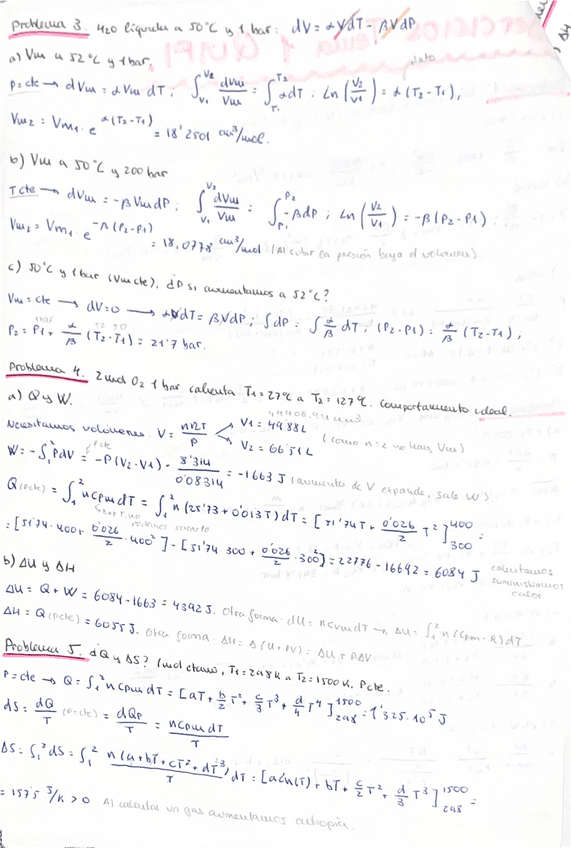 Problema 3. H2O líquida a 50°C y 1 bar: dV = αVdT - βVdP
a) Vm a 52°C y 1 bar.
P=cte → dVm = αVm dT ; ∫_{V1}^{V2} dVm/Vm = ∫_{T1}^{T2} αdT ; Ln(V2/V1) = α(T2-T1),
Vm2 = Vm1 · e^{α(T2-T1)} = 18'2501 cm³/mol.
b) Vm a 50°C y 200 bar
T cte → dVm = -βVm dP ; ∫_{V1}^{V2} dVm/Vm = ∫_{P1}^{P2} -βdP ; Ln(V2/V1) = -β(P2-P1)
Vm2 = Vm1 · e^{-β(P2-P1)} = 18,0778 cm³/mol (Al subir la presión baja el volumen)
c) 50°C y 1 bar (Vm cte), ¿P si aumentamos a 52°C?
Vm = cte → dV=0 → αVdT = βVdP ; ∫dP = ∫ α/β dT ; (P2-P1) = α/β (T2-T1),
P2 = P1 + α/β (T2-T1) = 21'7 bar.
Problema 4. 2 mol O2 1 bar calienta T1=27°C a T2=127°C. Comportamiento ideal.
a) Q y W.
Necesitamos volúmenes: V = nRT/P V1 = 49'88L V2 = 66'51L (como n=2 no hay Vm)
W = -∫_1^2 PdV = -P(V2-V1) · 8'314/0'08314 = -1663 J (aumento de V expande, sale W).
Q(Pcte) = ∫_1^2 nCpmdT = ∫_1^2 n(25'73+0'013T)dT = [51'74T + 0'026/2 T²]_{300}^{400} =
= [51'74·400 + 0'026/2 ·400²] - [51'74·300 + 0'026/2 ·300²] = 22776 - 16692 = 6084 J calentamos suministramos calor
b) ΔU y ΔH
ΔU = Q + W = 6084-1663 = 4392 J. Otra forma: dU = nCvmdT → ΔU = ∫_1^2 n(Cpm-R)dT
ΔH = Q(Pcte) = 6055 J. Otra forma: ΔH = Δ(U+PV) = ΔU + PΔV
Problema 5. ¿Q y ΔS? 1 mol etano, T1=298K a T2=1500K, Pcte.
P=cte → Q = ∫_1^2 nCpmdT = [aT + b/2 T² + c/3 T³ + d/4 T⁴]_{298}^{1500} = 1'325·10⁵ J
dS = dQ/T (P=cte) = dQp/T = nCpmdT/T
ΔS = ∫_1^2 dS = ∫_1^2 n(a+bT+cT²+dT³)/T dT = [aLn(T) + bT + c/2 T² + d/3 T³]_{298}^{1500} =
= 157'5 J/K > 0 Al calentar un gas aumentamos entropía.